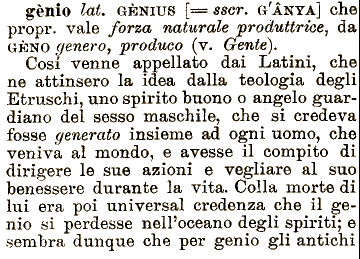 gènio lat. GÈNIUS [= sscr. G'ÂNYA] che
propr. vale forza naturale produttrice, da
GÈNO genero, produco (v. Gente).
Così venne appellato dai Latini, che
ne attinsero la idea dalla teologia degli
Etruschi, uno spirito buono o angelo guar-
diano del sesso maschile, che si credeva
fosse generato insieme ad ogni uomo, che
veniva al mondo, e avesse il compito di
dirigere le sue azioni e vegliare al suo
benessere durante la vita. Colla morte di
lui era poi universal credenza che il ge-
nio si perdesse nell'oceano degli spiriti; e
sembra dunque che per genio gli antichi